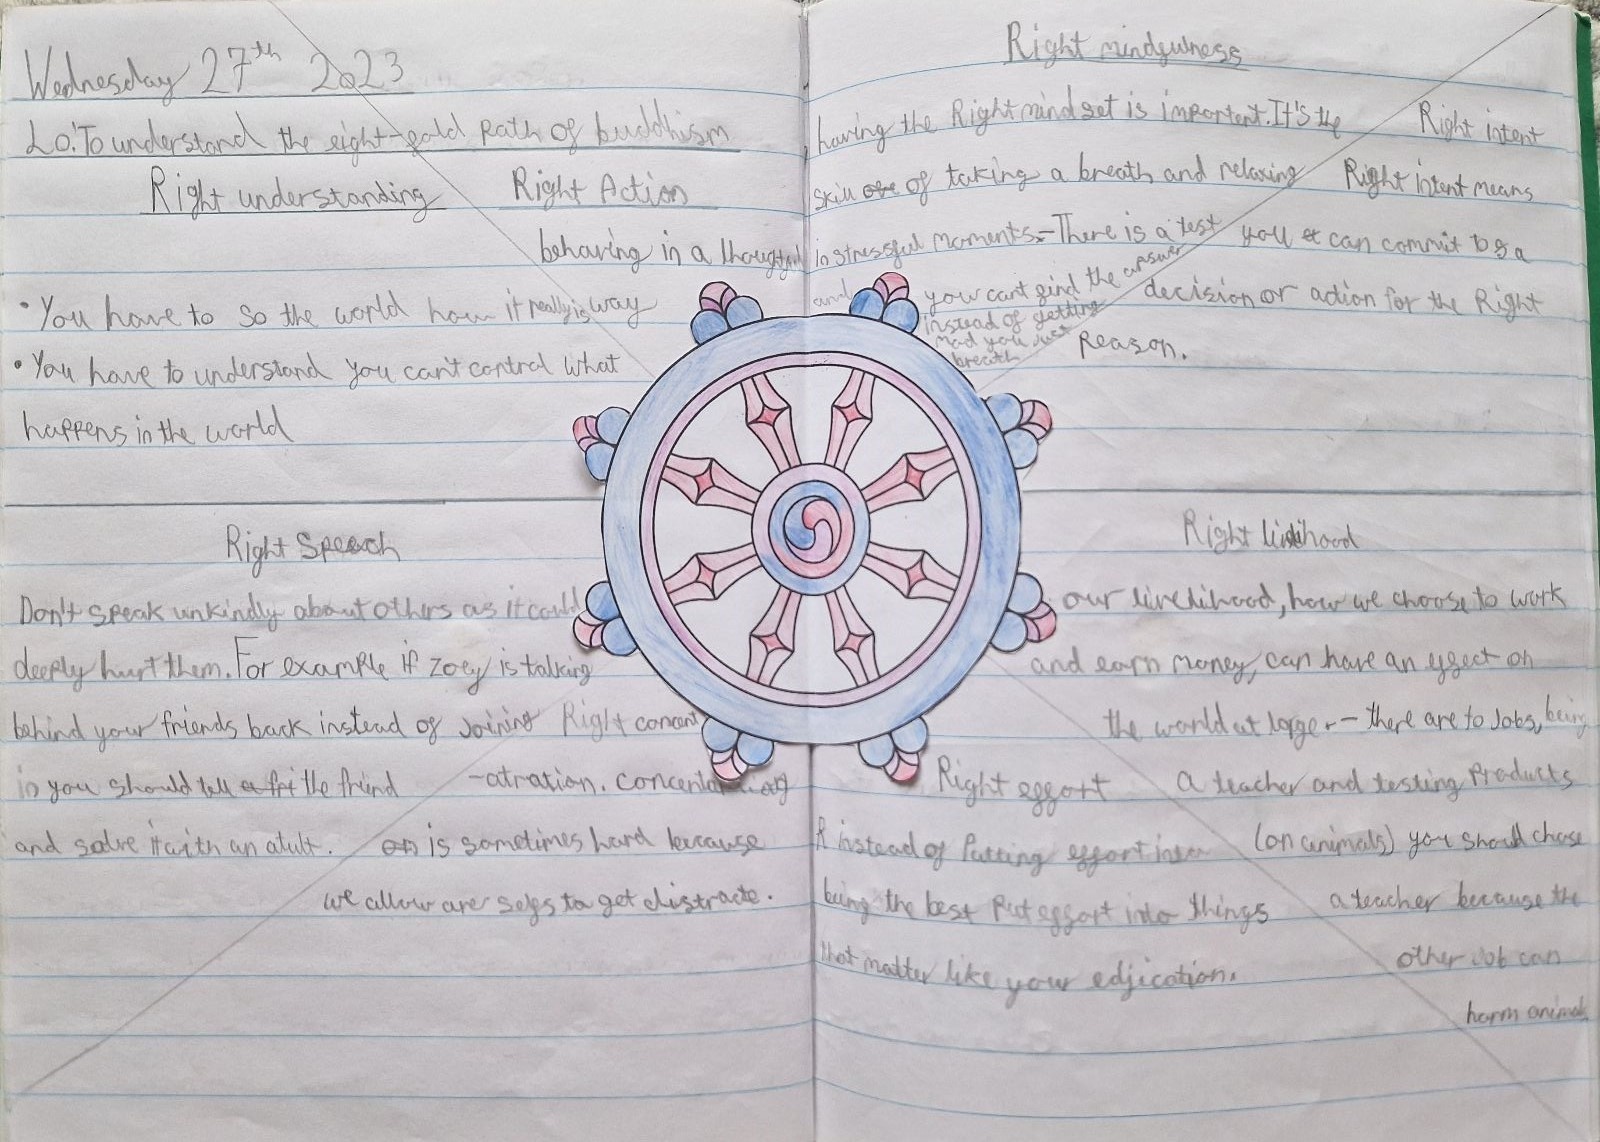 Wednesday 27th 2023
LO: To understand the eight-fold path of buddhism
Right understanding
• You have to so the world how it really is
• You have to understand you can't control what
happens in the world
Right Action
behaving in a thoughtful
way
Right mindfulness
having the Right mind set is important. It's the
skill of taking a breath and relaxing
in stressful moments.- There is a test
and you cant find the answer
instead of getting
mad you just
breath
Right intent
Right intent means
you can commit to a
decision or action for the Right
Reason.
Right Speech
Don't speak unkindly about others as it could
deeply hurt them. For example if zoey is talking
behind your friends back instead of Joining
in you should tell the friend
and solve it with an atult.
Right concent
-atration. concentr
is sometimes hard because
we allow are selfs to get distracte.
Right effort
instead of Putting effort into
being the best Put effort into things
that matter like your edjication.
Right livelihood
our livelihood, how we choose to work
and earn money, can have an effect on
the world at large - there are to Jobs, being
a teacher and testing Products
(on animals) you should chose
a teacher because the
other Job can
harm animals